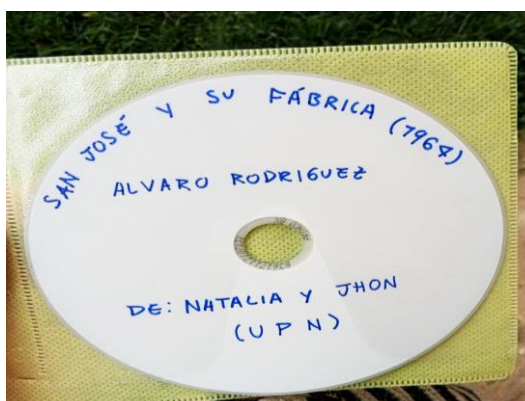 SAN JOSÉ Y SU FÁBRICA (1964)
ALVARO RODRIGUEZ
DE: NATALIA Y JHON
(UPN)